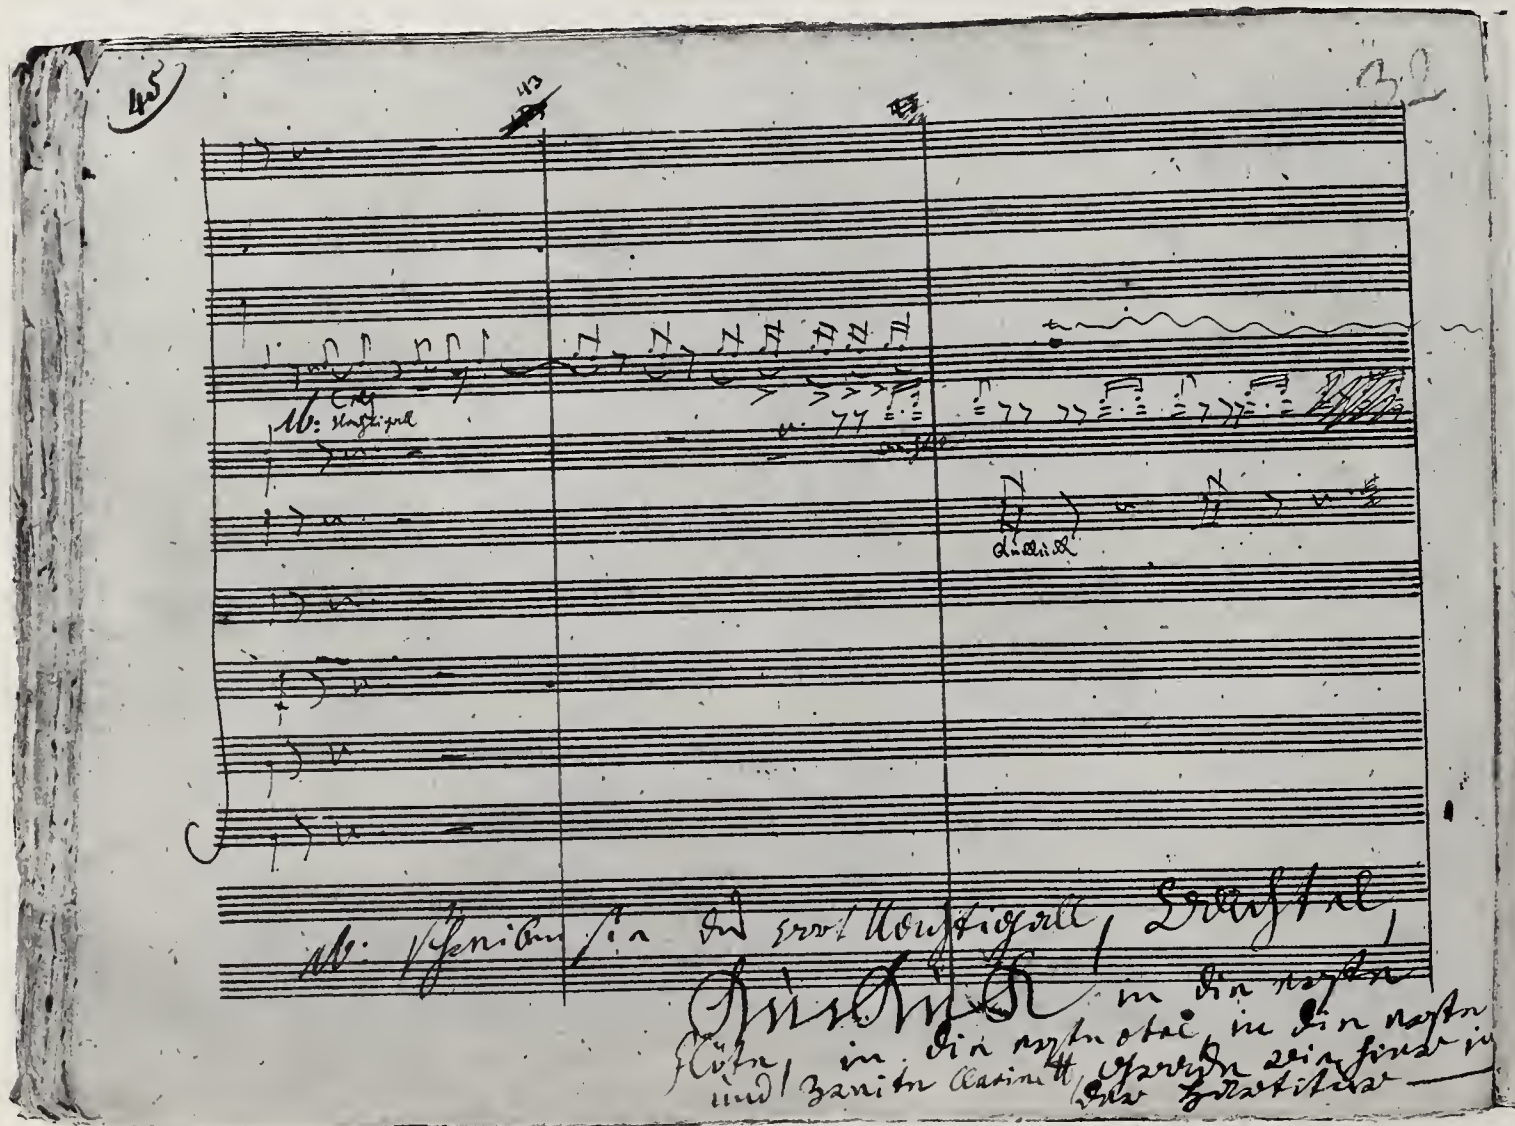 45
43
32
Nb: Nachtigall
Wachtel
Kukuk
Nb: schreiben sie das wort Nachtigall, Wachtel,
Kukuk in die erste
flöte, in die erste oboe, in die erste
und zweite Clarinett, gerade wie hier in
der Partitur —